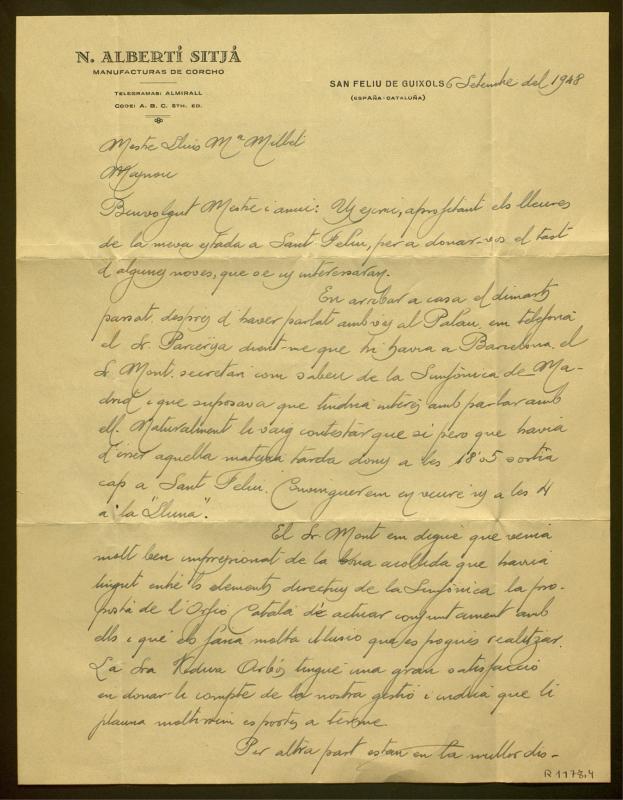 N. ALBERTÍ SITJÁ
MANUFACTURAS DE CORCHO
TELEGRAMAS: ALMIRALL
CODE: A. B. C. 5TH. ED.
SAN FELIU DE GUIXOLS 6 Setembre del 1948
(ESPAÑA-CATALUÑA)
Mestre Lluis Mª Millet
Benvolgut Mestre i amic: Us escric, aprofitant els lleures
de la meva estada a Sant Feliu, per a donar-vos el tast
d'algunes noves, que se us interessaran.
En arribar a casa el dimarts
passat, despres d'haver parlat amb vos al Palau, em telefonà
el Sr. Parcerisa dient-me que hi havia a Barcelona el
Sr. Mont, secretari com sabeu de la Simfònica de Ma-
drid i que suposava que tindria interès amb parlar amb
ell. Naturalment li vaig contestar que si pero que havia
d'esser aquella mateixa tarda dons a les 18'05 sortia
cap a Sant Feliu. Convinguerem en veure'ns a les 4
a "la Lluna".
El Sr. Mont em digué que venia
molt ben impresionat de la bona acollida que havia
tingut entre els elements directius de la Simfònica la pro-
posta de l'Orfeó Català de actuar conjuntament amb
ells i que els faria molta il·lusió que es pogués realitzar.
La Sra Vedua Arbós tingué una gran satisfacció
en donar-li compte de la nostra gestió i indicà que li
plauria moltissim es portés a terme.
Per altra part estan en la millor dis-
R 1178,4